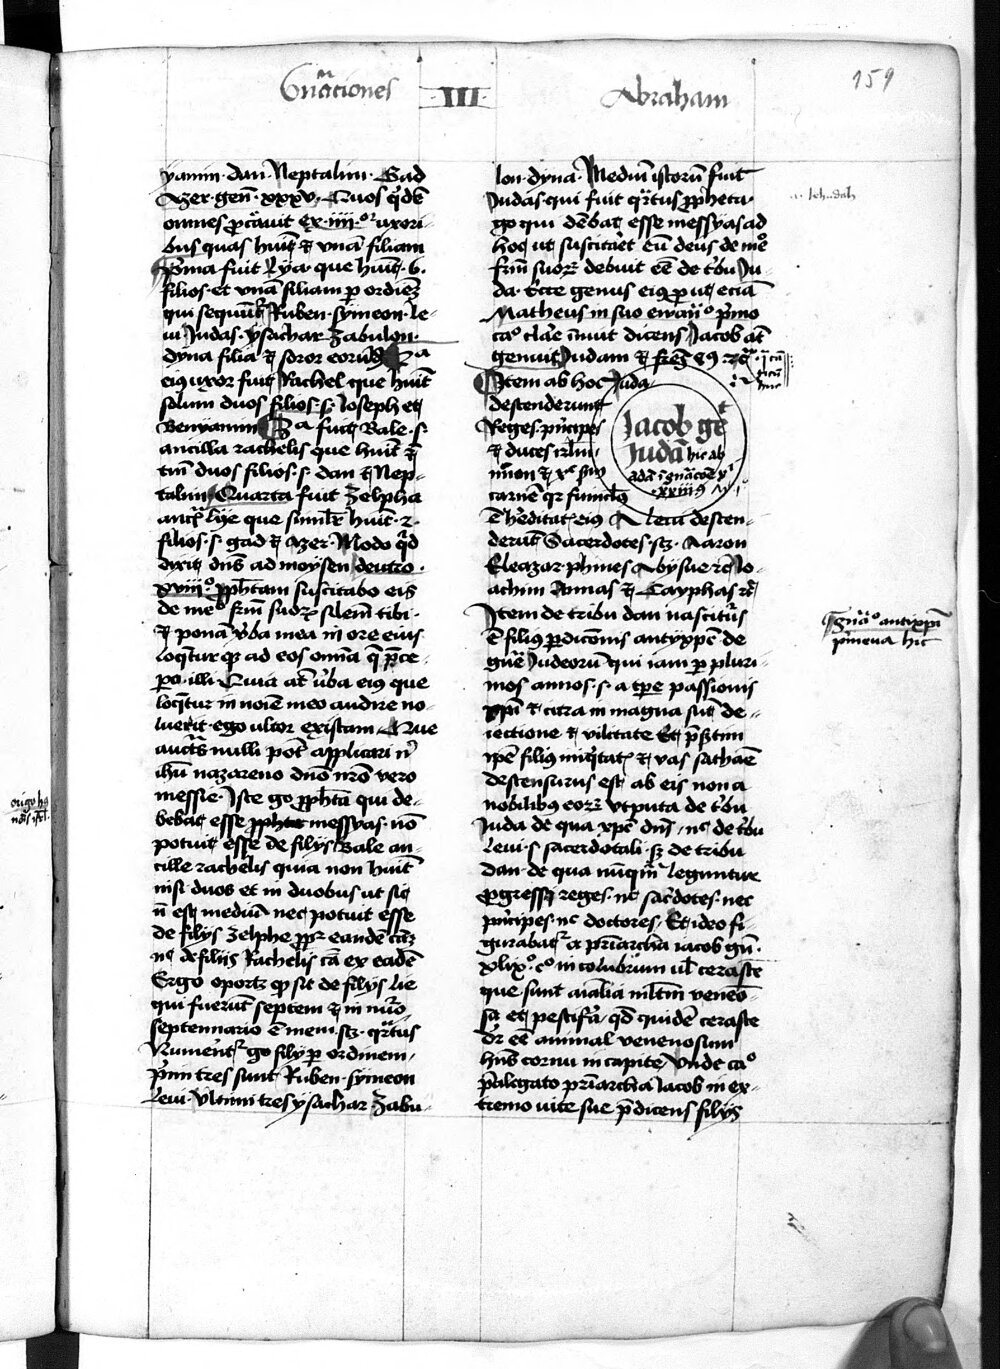 Gn̄ationes III Abraham
159
yamin · dan · Neptalim · Gad
Azer · gen̄t · xxxv · Quos q̄dē
omnes p̄creauit ex · iiii · or uxori
bus quas huit ⁊ vnā filiam
p̄ma fuit Lya · que huit · 6 ·
filios · et vnā filiam p ordinē
qui sequūt Ruben · Symeon · le
ui Judas · ysachar Zabulon ·
dyna filia ⁊ soror eorūdē 2a
eius uxor fuit Rachel que huit
solum duos filios · s · Joseph et
Benyamin 3a fuit Bale · s ·
ancilla rachelis que huit
tm̄ duos filios · s · dan ⁊ Nep
talim Quarta fuit Zelpha
anc̄ lye que simil̄r huit · 2 ·
filios · s · gad ⁊ Azer · Modo q̄d
dixit dn̄s ad moysen deutro ·
xviij o p̄ph̄tam suscitabo eis
de meo fr̄m suorꝝ silem tibi ·
⁊ ponā v̄ba mea in ore eius
loq̄tur qꝫ ad eos omīa q̄ p̄ce ·
po · illi Quia āt v̄ba eiꝰ que
loq̄tur in noīe meo audire no ·
luerit · ego ultor existam · Que
auct̄s nulli pōt applicari n̄
ihū nazareno dn̄o nr̄o vero
messie · Iste g̊ p̄ph̄ta qui de ·
bebat esse messyas · nō
potuit esse de filijs Bale an ·
cille rachelis quia non huit
nisi duos et in duobus ut sic
nō est mediū nec potuit esse
de filijs Zelphe p̄p̄r eandē cām
nec de filiis Rachelis cā ex eadē
Ergo oportꝫ qꝫ sit de filijs lie
qui fuerūt septem ⁊ in nūo
septennario ē mem · sꝫ · q̄rtus
Numen̄t g̊ filij p ordinem ·
p̄mi tres sunt Ruben · symeon
leui · Ultimi tres ysachar Zabu ·
lon · dyna · Mediū istorū fuit
Judas · qui fuit q̄rtus p̄pheta ·
g̊ qui dēbat esse messyas ad
hoc ut suscitāet eū deus de meo
fr̄m suorꝝ debuit eē de t̄bu Ju
da · Ecce genus eiꝰ put eciā
Matheus in suo ewāio p̄mo
cao clāe īnuit dicens Jacob āt
genuit Judam ⁊ fr̄es eꝰ ⁊c̄
Item ab hoc Juda
descenderunt
Reges · p̄ncipes
⁊ duces
carnē qr funiclꝰ
ē h̄editat̄ eiꝰ A Leui descen ·
derūt Sacerdotes · sꝫ · Aaron
Eleazar · phines Abysue ⁊c̄ Jo
achim Annas ⁊ Cayphas ⁊c̄
Jacob ge
Judā hic ab
adā gnācōe
xxiij
Item de tribu dan nascitur̄s
ē filiꝰ p̄dicōnis antyxpē de
gn̄e Judeorū qui iam p pluri ·
mos annos · s · a tp̄e passionis
xp̄i ⁊ citra in magna sūt de ·
iectione ⁊ vilitate Et p̄s̄tim
ip̄e filius iniq̄tat̄ ⁊ vas sathaē
descensurus est ab eis non a
nobilibus eorꝝ vtputa de t̄bu
Juda de qua xp̄c dn̄s · nec de t̄bu
Leui · s · sacerdotali · sꝫ de tribu
dan · de qua nūq̄m leguntur
pgressi reges · nec sac̄dotes · nec
p̄ncipes · nec doctores · Et ideo fi
gurabat̄ a priārcha iacob gn̄ ·
xlixo · co in colubrum ul̄ cerastē
que sunt aīalia ml̄tm veneō ·
sa et pestif̄a · qd quidē ceraste
dr̄ eē animal venenosum
hn̄s cornu in capite, Unde cao
p̄alegato priārcha Jacob in ex ·
tremo uite sue p̄dicens filijs
Gn̄āo antyxp̄i
p̄meua hic
origo